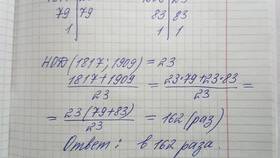 79 | 79 83 | 83
1 | 1 | 1
НОД (1817; 1909) = 23
1817+1909 / 23 = 23·79+23·83 / 23 =
= 23(79+83) / 23 = 162 (раз)
Ответ: в 162 раза